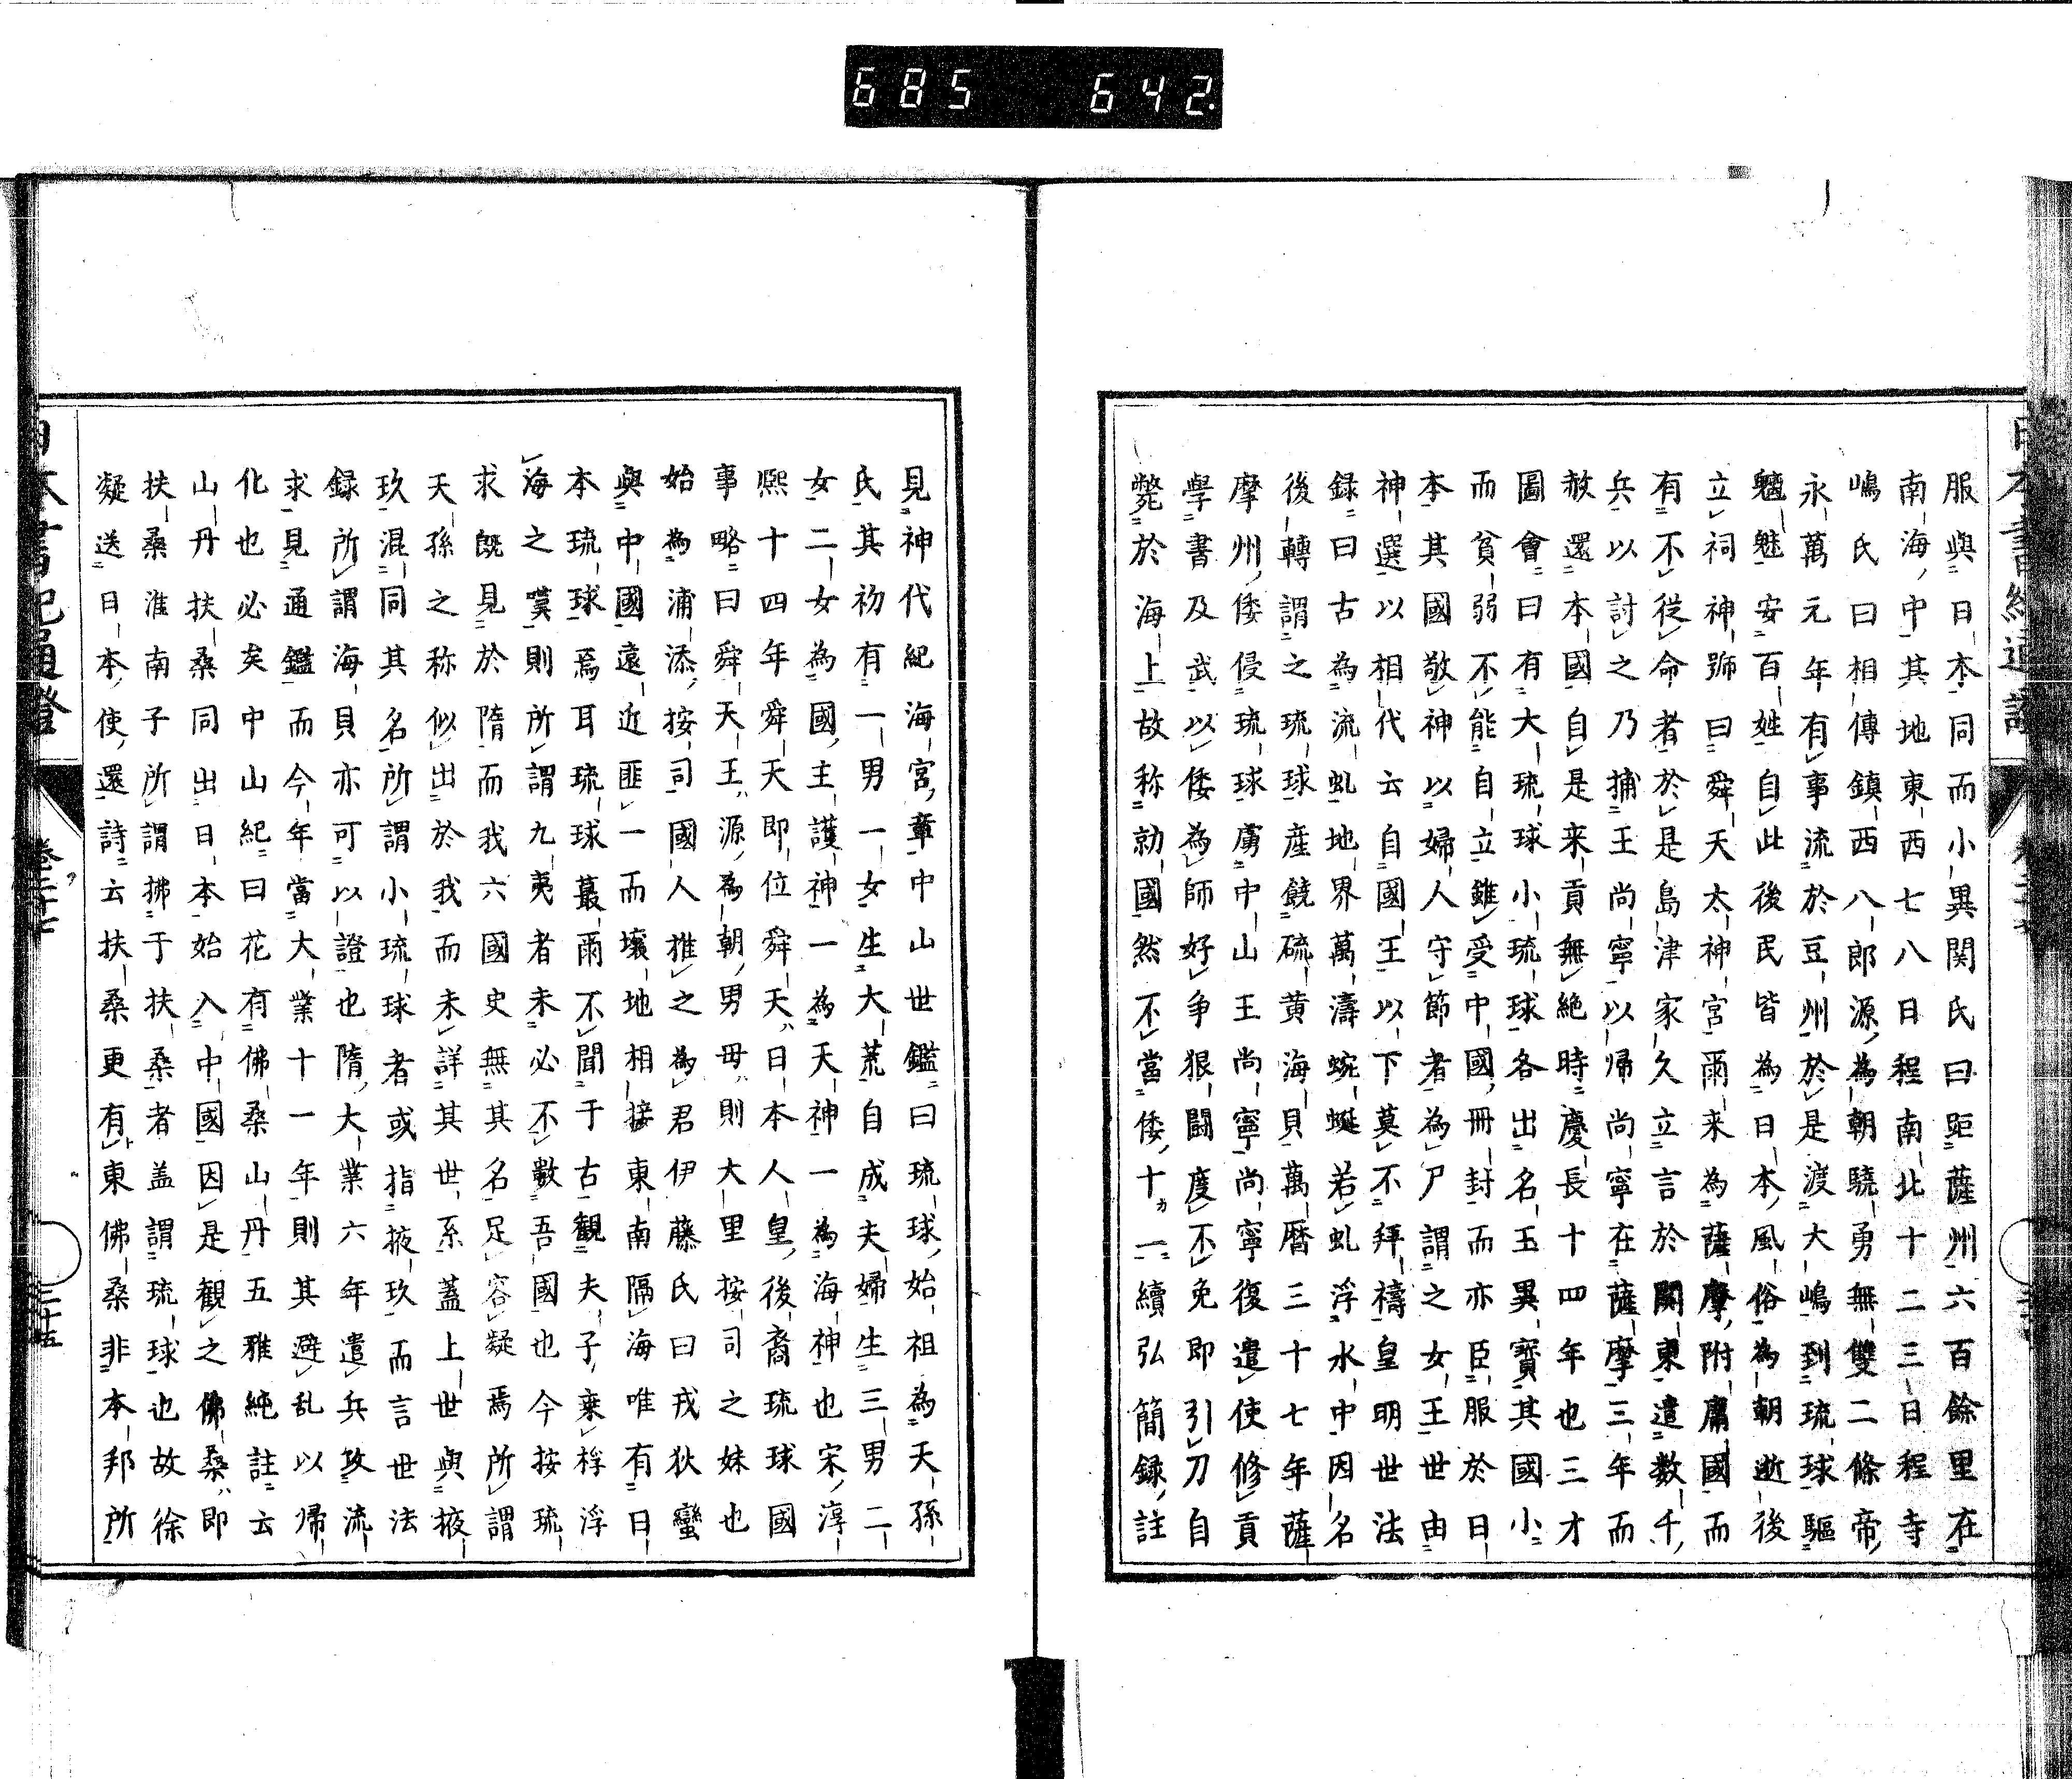 685 642
服與日本同而小異関氏曰距薩州六百餘里在
南海中其地東西七八日程南北十二三日程寺
嶋氏曰相傳鎮西八郎源為朝驍勇無雙二條帝
永萬元年有事流於豆州於是渡大嶋到琉球驅
魑魅安百姓自此後民皆為日本風俗為朝逝後
立祠神号曰舜天太神宮爾来為薩摩附庸國而
有不從命者於是島津家久立言於関東遣数千
兵以討之乃捕王尚寧以帰尚寧在薩摩三年而
赦還本國自是来貢無絶時慶長十四年也三才
圖會曰有大琉球小琉球各出名玉異寳其國小
而貧弱不能自立雖受中國冊封而亦臣服於日
本其國敬神以婦人守節者為尸謂之女王世由
神選以相代云自國王以下莫不拜禱皇明世法
録曰古為流虬地界萬濤蜿蜒若虬浮水中因名
後轉謂之琉球産饒硫黄海貝萬暦三十七年薩
摩州倭侵琉球虜中山王尚寧尚寧復遣使修貢
學書及武以倭為師好争狠闘度不免即引刀自
斃於海上故称勍國然不當倭十一續弘簡録註
見神代紀海宮章中山世鑑曰琉球始祖為天孫
氏其初有一男一女生大荒自成夫婦生三男二
女二女為國主護神一為天神一為海神也宋淳
熈十四年舜天即位舜天日本人皇後裔琉球國
事略曰舜天王源為朝男毋則大里按司之妹也
始為浦添按司國人推之為君伊藤氏曰戎狄蠻
與中國遠近匪一而壤地相接東南隔海唯有日
本琉球焉耳琉球蕞爾不聞于古觀夫子乗桴浮
海之嘆則所謂九夷者未必不數吾國也今按琉
求既見於隋而我六國史無其名足容疑焉所謂
天孫之称似出於我而未詳其世系蓋上世與掖
玖混同其名所謂小琉球者或指掖玖而言世法
録所謂海貝亦可以證也隋大業六年遣兵攻流
求見通鑑而今年當大業十一年則其避乱以帰
化也必矣中山紀曰花有佛桑山丹五雅純註云
山丹扶桑同出日本始入中國因是觀之佛桑即
扶桑淮南子所謂拂于扶桑者盖謂琉球也故徐
凝送日本使還詩云扶桑更有東佛桑非本邦所